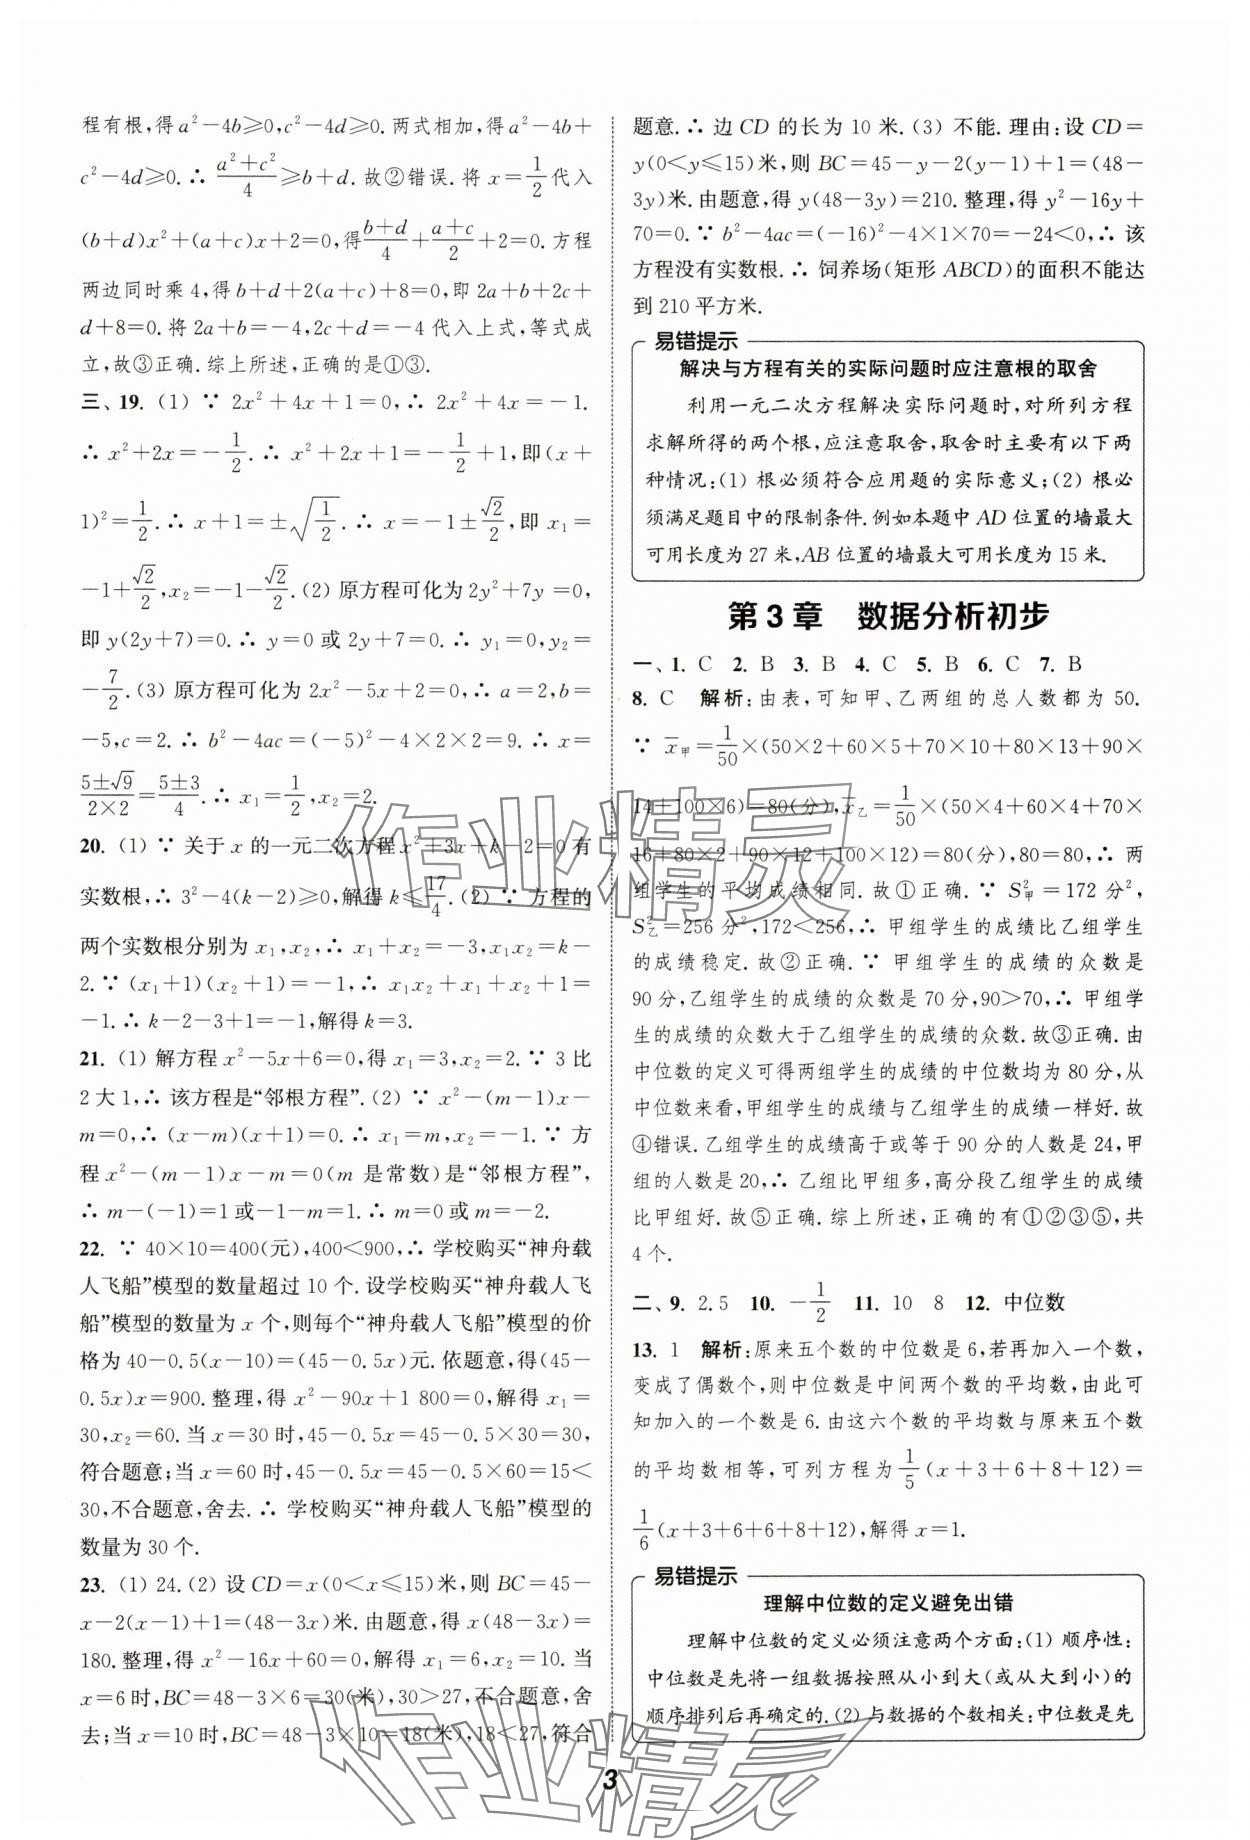 程有根,得 a²－4b≥0,c²－4d≥0. 两式相加,得 a²－4b＋
c²－4d≥0. ∴ (a²＋c²)/4≥b＋d. 故②错误. 将 x＝1/2代入
(b＋d)x²＋(a＋c)x＋2＝0,得(b＋d)/4＋(a＋c)/2＋2＝0. 方程
两边同时乘 4,得 b＋d＋2(a＋c)＋8＝0,即 2a＋b＋2c＋
d＋8＝0. 将 2a＋b＝－4,2c＋d＝－4 代入上式,等式成
立,故③正确. 综上所述,正确的是①③.
三、19. (1) ∵ 2x²＋4x＋1＝0,∴ 2x²＋4x＝－1.
∴ x²＋2x＝－1/2. ∴ x²＋2x＋1＝－1/2＋1,即(x＋
1)²＝1/2. ∴ x＋1＝±√(1/2). ∴ x＝－1±√2/2,即 x₁＝
－1＋√2/2,x₂＝－1－√2/2. (2) 原方程可化为 2y²＋7y＝0,
即 y(2y＋7)＝0. ∴ y＝0 或 2y＋7＝0. ∴ y₁＝0,y₂＝
－7/2. (3) 原方程可化为 2x²－5x＋2＝0,∴ a＝2,b＝
－5,c＝2. ∴ b²－4ac＝(－5)²－4×2×2＝9. ∴ x＝
(5±√9)/(2×2)＝(5±3)/4. ∴ x₁＝1/2,x₂＝2.
20. (1) ∵ 关于 x 的一元二次方程 x²＋3x＋k－2＝0 有
实数根,∴ 3²－4(k－2)≥0,解得 k≤17/4. (2) ∵ 方程的
两个实数根分别为 x₁,x₂,∴ x₁＋x₂＝－3,x₁x₂＝k－
2. ∵ (x₁＋1)(x₂＋1)＝－1,∴ x₁x₂＋x₁＋x₂＋1＝
－1. ∴ k－2－3＋1＝－1,解得 k＝3.
21. (1) 解方程 x²－5x＋6＝0,得 x₁＝3,x₂＝2. ∵ 3 比
2 大 1,∴ 该方程是“邻根方程”. (2) ∵ x²－(m－1)x－
m＝0,∴ (x－m)(x＋1)＝0. ∴ x₁＝m,x₂＝－1. ∵ 方
程 x²－(m－1)x－m＝0(m 是常数)是“邻根方程”,
∴ m－(－1)＝1 或－1－m＝1. ∴ m＝0 或 m＝－2.
22. ∵ 40×10＝400(元),400<900,∴ 学校购买“神舟载
人飞船”模型的数量超过 10 个. 设学校购买“神舟载人飞
船”模型的数量为 x 个,则每个“神舟载人飞船”模型的价
格为 40－0.5(x－10)＝(45－0.5x)元. 依题意,得(45－
0.5x)x＝900. 整理,得 x²－90x＋1 800＝0,解得 x₁＝
30,x₂＝60. 当 x＝30 时,45－0.5x＝45－0.5×30＝30,
符合题意;当 x＝60 时,45－0.5x＝45－0.5×60＝15<
30,不合题意,舍去. ∴ 学校购买“神舟载人飞船”模型的
数量为 30 个.
23. (1) 24. (2) 设 CD＝x(0<x≤15)米,则 BC＝45－
x－2(x－1)＋1＝(48－3x)米. 由题意,得 x(48－3x)＝
180. 整理,得 x²－16x＋60＝0,解得 x₁＝6,x₂＝10. 当
x＝6 时,BC＝48－3×6＝30(米),30>27,不合题意,舍
去;当 x＝10 时,BC＝48－3×10＝18(米),18<27,符合
题意. ∴ 边 CD 的长为 10 米. (3) 不能. 理由:设 CD＝
y(0<y≤15)米,则 BC＝45－y－2(y－1)＋1＝(48－
3y)米. 由题意,得 y(48－3y)＝210. 整理,得 y²－16y＋
70＝0. ∵ b²－4ac＝(－16)²－4×1×70＝－24<0,∴ 该
方程没有实数根. ∴ 饲养场(矩形 ABCD)的面积不能达
到 210 平方米.
易错提示
解决与方程有关的实际问题时应注意根的取舍
利用一元二次方程解决实际问题时,对所列方程
求解所得的两个根,应注意取舍,取舍时主要有以下两
种情况:(1) 根必须符合应用题的实际意义;(2) 根必
须满足题目中的限制条件. 例如本题中 AD 位置的墙最大
可用长度为 27 米,AB 位置的墙最大可用长度为 15 米.
第 3 章 数据分析初步
一、1. C 2. B 3. B 4. C 5. B 6. C 7. B
8. C 解析:由表,可知甲、乙两组的总人数都为 50.
∵ x̄甲＝1/50×(50×2＋60×5＋70×10＋80×13＋90×
14＋100×6)＝80(分),x̄乙＝1/50×(50×4＋60×4＋70×
16＋80×2＋90×12＋100×12)＝80(分),80＝80,∴ 两
组学生的平均成绩相同. 故①正确. ∵ S²甲＝172 分²,
S²乙＝256 分²,172<256,∴ 甲组学生的成绩比乙组学生
的成绩稳定. 故②正确. ∵ 甲组学生的成绩的众数是
90 分,乙组学生的成绩的众数是 70 分,90>70,∴ 甲组学
生的成绩的众数大于乙组学生的成绩的众数. 故③正确. 由
中位数的定义可得两组学生的成绩的中位数均为 80 分,从
中位数来看,甲组学生的成绩与乙组学生的成绩一样好. 故
④错误. 乙组学生的成绩高于或等于 90 分的人数是 24,甲
组的人数是 20,∴ 乙组比甲组多,高分段乙组学生的成绩
比甲组好. 故⑤正确. 综上所述,正确的有①②③⑤,共
4 个.
二、9. 2.5 10. －1/2 11. 10 8 12. 中位数
13. 1 解析:原来五个数的中位数是 6,若再加入一个数,
变成了偶数个,则中位数是中间两个数的平均数,由此可
知加入的一个数是 6. 由这六个数的平均数与原来五个数
的平均数相等,可列方程为1/5(x＋3＋6＋8＋12)＝
1/6(x＋3＋6＋6＋8＋12),解得 x＝1.
易错提示
理解中位数的定义避免出错
理解中位数的定义必须注意两个方面:(1) 顺序性:
中位数是先将一组数据按照从小到大(或从大到小)的
顺序排列后再确定的. (2) 与数据的个数相关:中位数是先
3
作业精灵
作业精灵